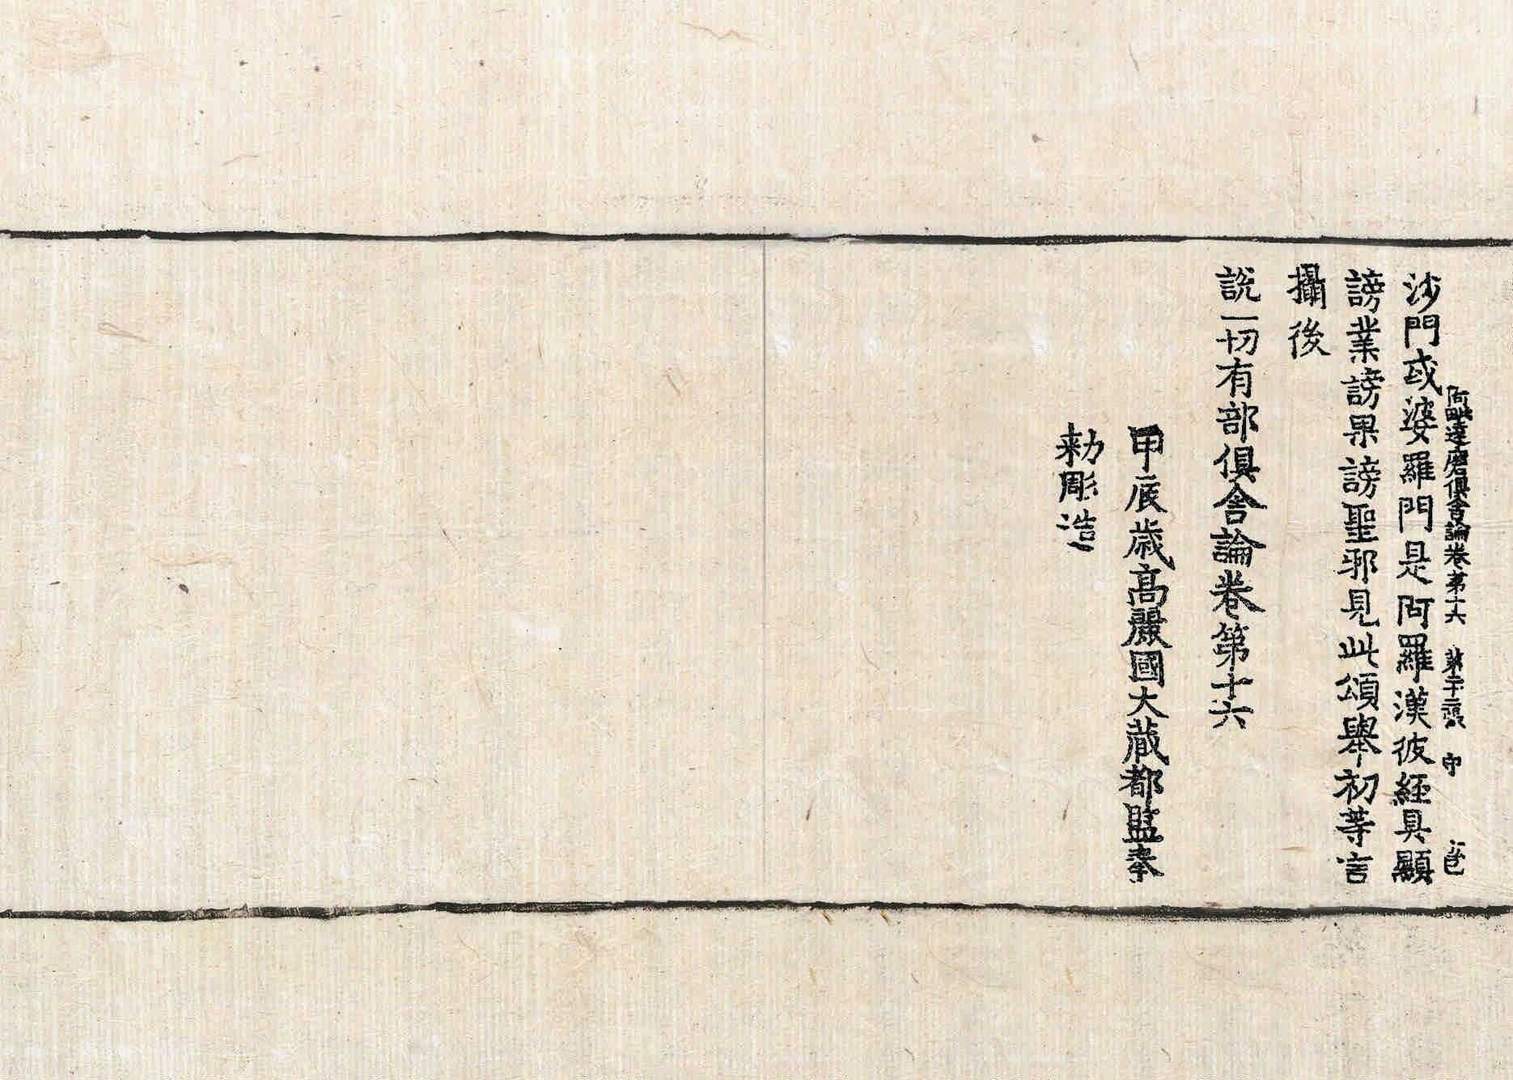 阿毗達磨俱舍論卷第十六 第二十二張 守
沙門或婆羅門是阿羅漢彼經具顯
謗業謗果謗聖邪見此頌舉初等言
攝後
說一切有部俱舍論卷第十六
甲辰歲高麗國大藏都監奉
勅彫造